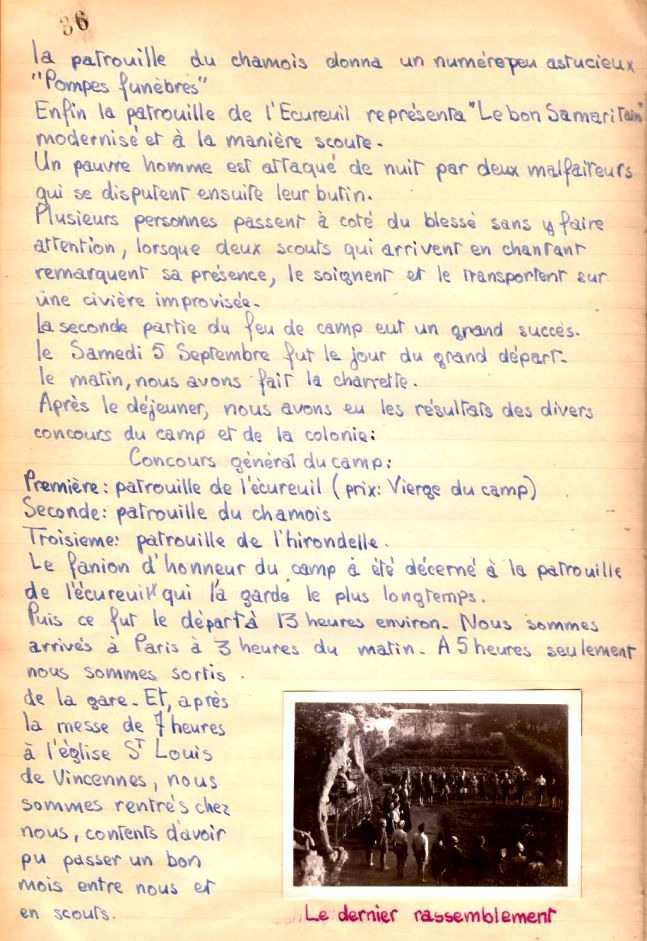 36
la patrouille du chamois donna un numéro peu astucieux
"Pompes funèbres"
Enfin la patrouille de l'Ecureuil représenta "Le bon Samaritain"
modernisé et à la manière scoute.
Un pauvre homme est attaqué de nuit par deux malfaiteurs
qui se disputent ensuite leur butin.
Plusieurs personnes passent à coté du blessé sans y faire
attention, lorsque deux scouts qui arrivent en chantant
remarquent sa présence, le soignent et le transportent sur
une civière improvisée.
la seconde partie du feu de camp eut un grand succès.
le Samedi 5 Septembre fut le jour du grand départ.
le matin, nous avons fait la charrette.
Après le déjeuner, nous avons eu les résultats des divers
concours du camp et de la colonie:
Concours général du camp:
Première: patrouille de l'écureuil (prix: Vierge du camp)
Seconde: patrouille du chamois
Troisieme: patrouille de l'hirondelle.
Le fanion d'honneur du camp à été décerné à la patrouille
de l'écureuil qui l'a gardé le plus longtemps.
Puis ce fut le départ à 13 heures environ. Nous sommes
arrivés à Paris à 3 heures du matin. A 5 heures seulement
nous sommes sortis
de la gare. Et, après
la messe de 7 heures
à l'église St Louis
de Vincennes, nous
sommes rentrés chez
nous, contents d'avoir
pu passer un bon
mois entre nous et
en scouts.
Le dernier rassemblement